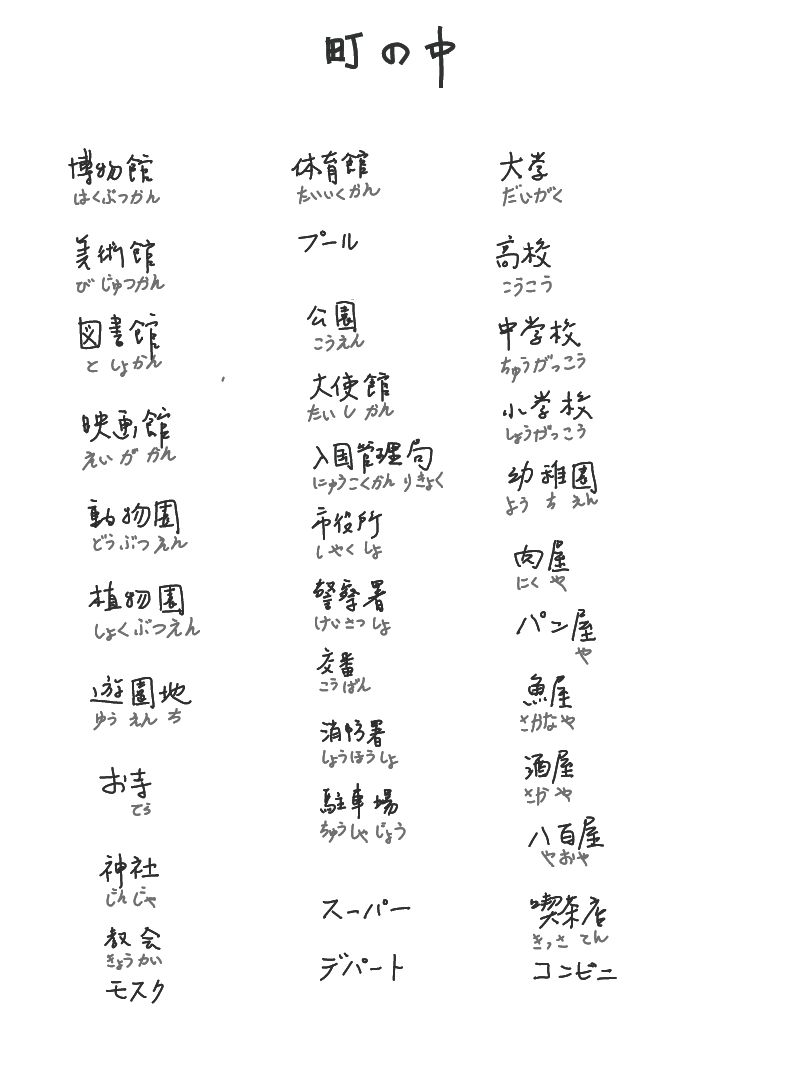 町の中
博物館
はくぶつかん
美術館
びじゅつかん
図書館
としょかん
映画館
えいがかん
動物園
どうぶつえん
植物園
しょくぶつえん
遊園地
ゆうえんち
お寺
てら
神社
じんじゃ
教会
きょうかい
モスク
体育館
たいいくかん
プール
公園
こうえん
大使館
たいしかん
入国管理局
にゅうこくかんりきょく
市役所
しやくしょ
警察署
けいさつしょ
交番
こうばん
消防署
しょうほうしょ
駐車場
ちゅうしゃじょう
スーパー
デパート
大学
だいがく
高校
こうこう
中学校
ちゅうがっこう
小学校
しょうがっこう
幼稚園
ようちえん
肉屋
にくや
パン屋
や
魚屋
さかなや
酒屋
さかや
八百屋
やおや
喫茶店
きっさてん
コンビニ